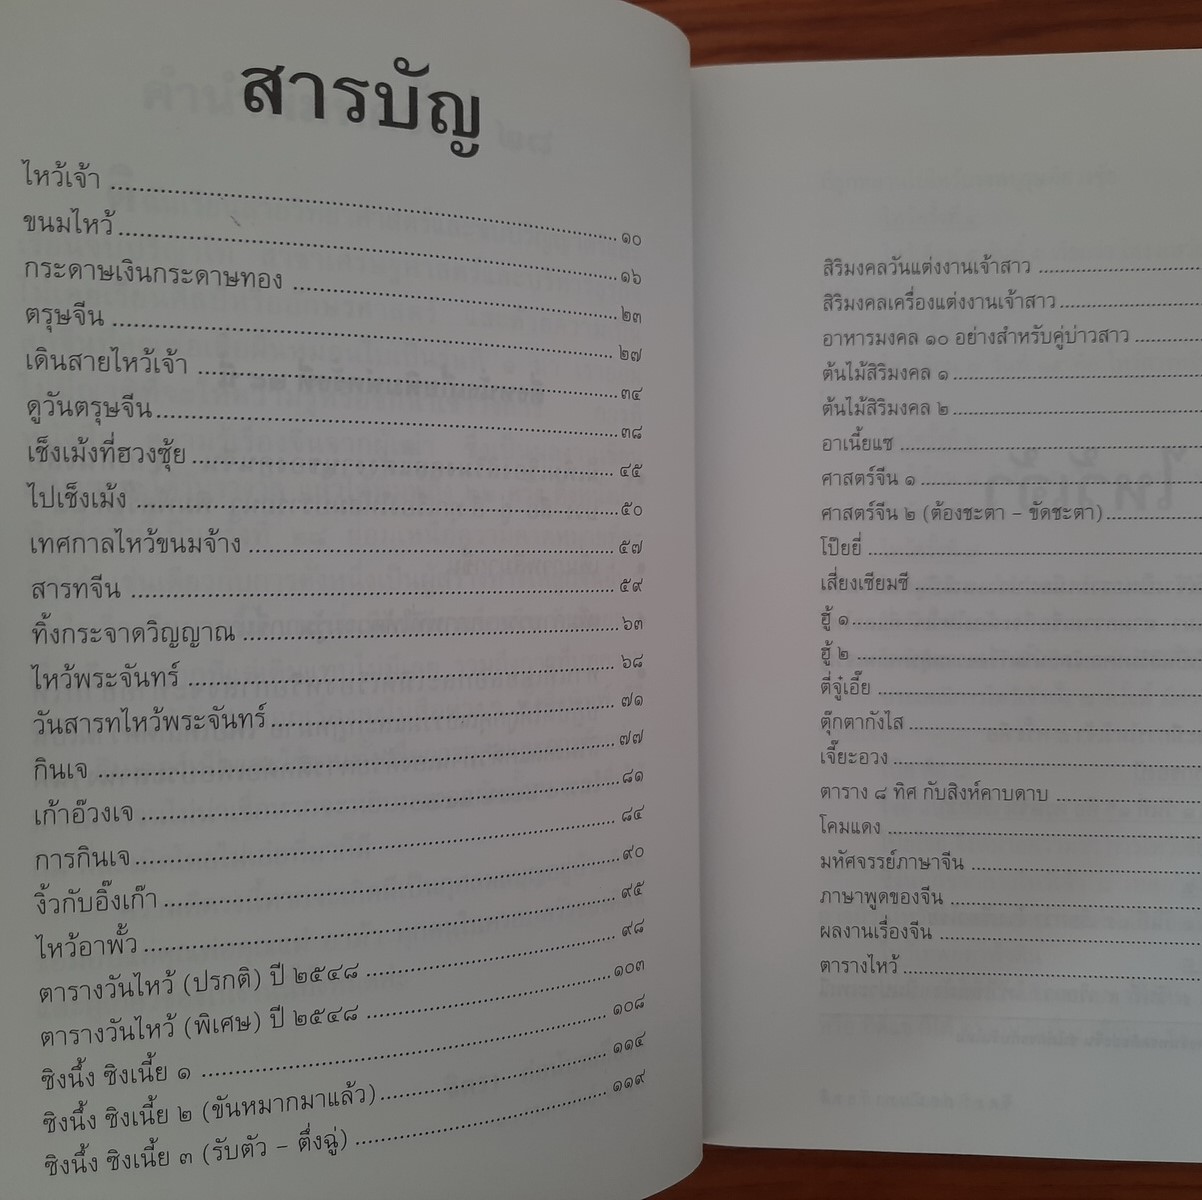 สารบัญ
ไหว้เจ้า ........ ๑๐
ขนมไหว้ ........ ๑๖
กระดาษเงินกระดาษทอง ........ ๒๓
ตรุษจีน ........ ๒๗
เดินสายไหว้เจ้า ........ ๓๔
ดูวันตรุษจีน ........ ๓๘
เช็งเม้งที่ฮวงซุ้ย ........ ๔๕
ไปเช็งเม้ง ........ ๕๐
เทศกาลไหว้ขนมจ้าง ........ ๕๗
สารทจีน ........ ๕๙
ทิ้งกระจาดวิญญาณ ........ ๖๓
ไหว้พระจันทร์ ........ ๖๘
วันสารทไหว้พระจันทร์ ........ ๗๑
กินเจ ........ ๗๗
เก้าอ๊วงเจ ........ ๘๑
การกินเจ ........ ๘๔
งิ้วกับอิ๊งเก๊า ........ ๙๐
ไหว้อาพั้ว ........ ๙๕
ตารางวันไหว้ (ปรกติ) ปี ๒๕๔๘ ........ ๙๘
ตารางวันไหว้ (พิเศษ) ปี ๒๕๔๘ ........ ๑๐๓
ซิงนึ้ง ซิงเนี้ย ๑ ........ ๑๐๘
ซิงนึ้ง ซิงเนี้ย ๒ (ขันหมากมาแล้ว) ........ ๑๑๔
ซิงนึ้ง ซิงเนี้ย ๓ (รับตัว – ตึ่งฉู่) ........ ๑๑๙
สิริมงคลวันแต่งงานเจ้าสาว ........
สิริมงคลเครื่องแต่งงานเจ้าสาว ........
อาหารมงคล ๑๐ อย่างสำหรับคู่บ่าวสาว ........
ต้นไม้สิริมงคล ๑ ........
ต้นไม้สิริมงคล ๒ ........
อาเนี้ยแซ ........
ศาสตร์จีน ๑ ........
ศาสตร์จีน ๒ (ต้องชะตา – ขัดชะตา) ........
โป๊ยยี่ ........
เสี่ยงเซียมซี ........
ฮู้ ๑ ........
ฮู้ ๒ ........
ตี่จู๋เอี๊ย ........
ตุ๊กตากังไส ........
เจี๊ยะอวง ........
ตาราง ๘ ทิศ กับสิงห์คาบดาบ ........
โคมแดง ........
มหัศจรรย์ภาษาจีน ........
ภาษาพูดของจีน ........
ผลงานเรื่องจีน ........
ตารางไหว้ ........